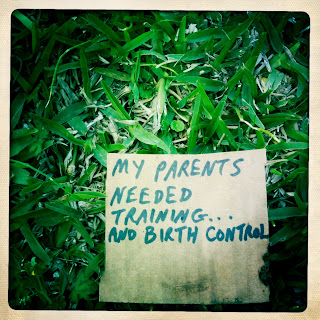 MY PARENTS
NEEDED
TRAINING...
AND BIRTH CONTROL